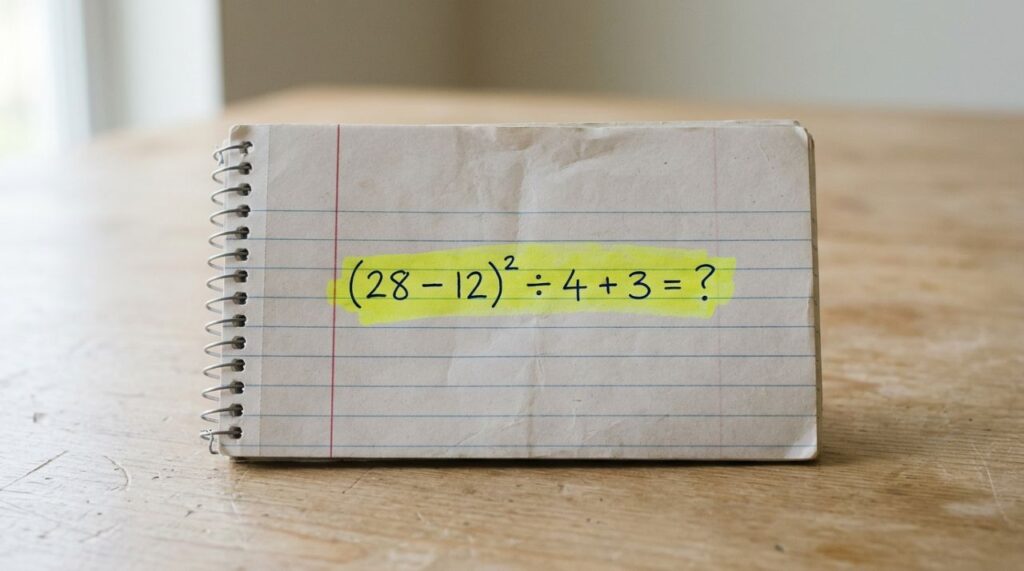 (28 − 12)² ÷ 4 + 3 = ?